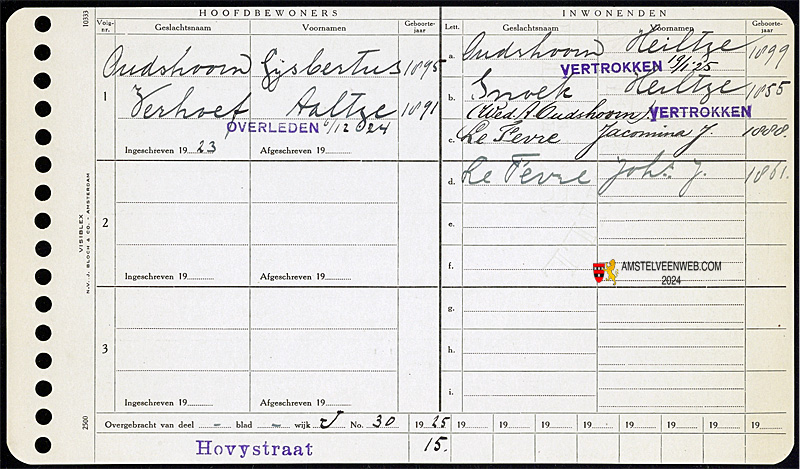 HOOFDBEWONERS
INWONENDEN
10333
Volg-nr.
Geslachtsnaam
Voornamen
Geboorte-jaar
Lett.
Geslachtsnaam
Voornamen
Geboorte-jaar
Oudshoorn Gijsbertus 1895
1 Verhoef Aaltze 1891
OVERLEDEN 6/12 024
Ingeschreven 19 23
Afgeschreven 19
2
Ingeschreven 19
Afgeschreven 19
3
Ingeschreven 19
Afgeschreven 19
a. Oudshoorn Heiltze 1899
VERTROKKEN 19/1.25
b. Snoek Heiltze 1855
(Wed. A. Oudshoorn) VERTROKKEN
c. Le Fevre Jacomina J.
d. Le Fevre Johs. J. 1861.
e.
f.
g.
h.
i.
AMSTELVEENWEB.COM
2024
VISIBLEX
N.V. J. BLOCH & CO. - AMSTERDAM
2500
Overgebracht van deel — blad — wijk J No. 30
19 25 19 19 19 19 19 19 19
Hovystraat 15.